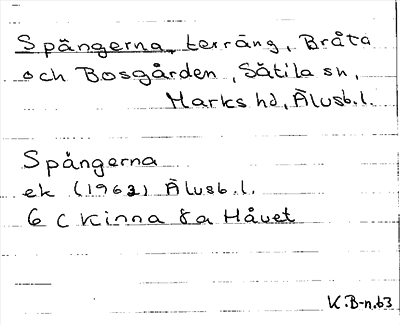 Spångerna, terräng, Bråta
och Bosgården, Sätila sn,
Marks hd, Älvsb.l.
Spångerna
ek (1963) Älvsb.l.
6 C Kinna 8a Håvet
K.B-n.63